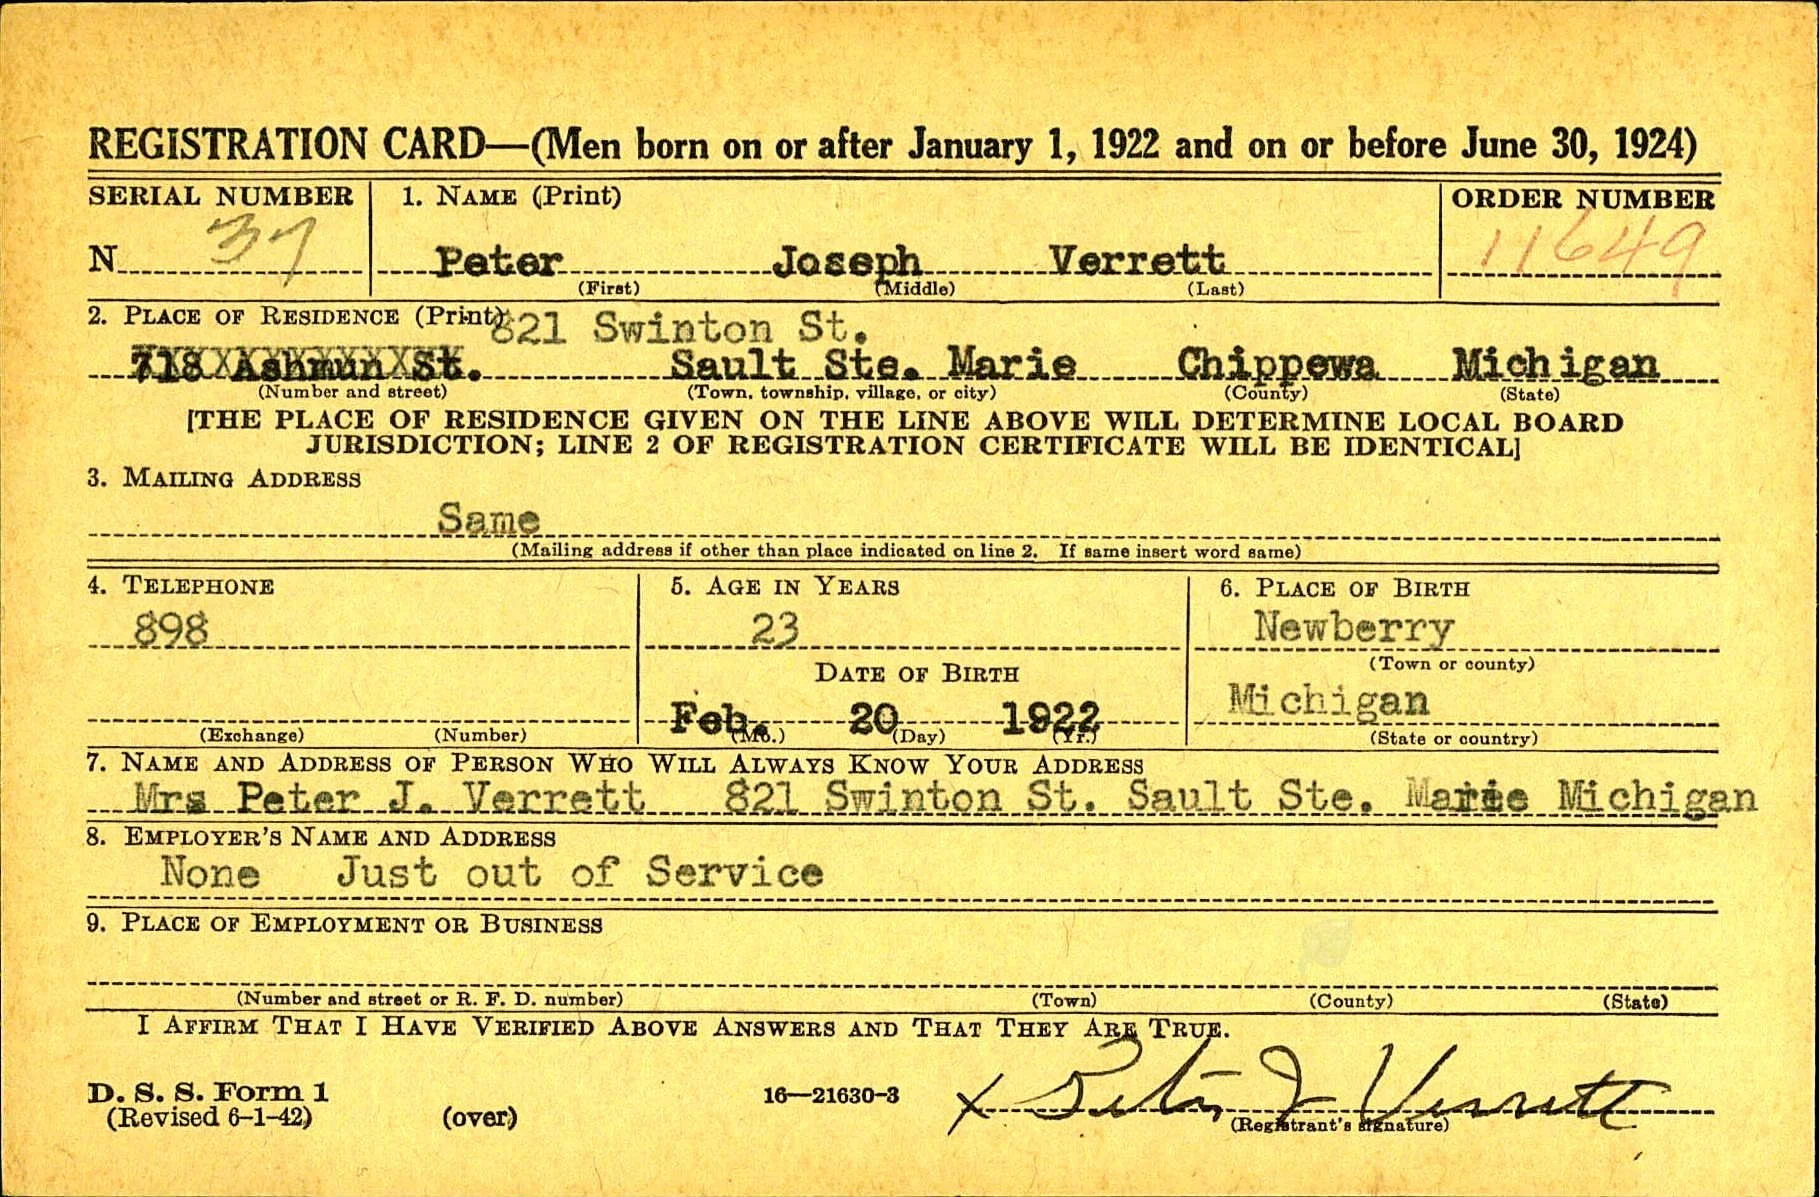 REGISTRATION CARD—(Men born on or after January 1, 1922 and on or before June 30, 1924)
SERIAL NUMBER 1. NAME (Print) ORDER NUMBER
N 37 Peter Joseph Verrett 11649
(First) (Middle) (Last)
2. PLACE OF RESIDENCE (Print) 821 Swinton St.
718 Ashmun St. Sault Ste. Marie Chippewa Michigan
(Number and street) (Town, township, village, or city) (County) (State)
[THE PLACE OF RESIDENCE GIVEN ON THE LINE ABOVE WILL DETERMINE LOCAL BOARD
JURISDICTION; LINE 2 OF REGISTRATION CERTIFICATE WILL BE IDENTICAL]
3. MAILING ADDRESS
Same
(Mailing address if other than place indicated on line 2. If same insert word same)
4. TELEPHONE 5. AGE IN YEARS 6. PLACE OF BIRTH
898 23 Newberry
DATE OF BIRTH (Town or county)
Feb. 20 1922 Michigan
(Exchange) (Number) (Mo.) (Day) (Yr.) (State or country)
7. NAME AND ADDRESS OF PERSON WHO WILL ALWAYS KNOW YOUR ADDRESS
Mrs Peter J. Verrett 821 Swinton St. Sault Ste. Marie Michigan
8. EMPLOYER'S NAME AND ADDRESS
None Just out of Service
9. PLACE OF EMPLOYMENT OR BUSINESS
(Number and street or R. F. D. number) (Town) (County) (State)
I AFFIRM THAT I HAVE VERIFIED ABOVE ANSWERS AND THAT THEY ARE TRUE.
D. S. S. Form 1 16—21630-3 x Peter J Verrett
(Revised 6-1-42) (over) (Registrant's signature)